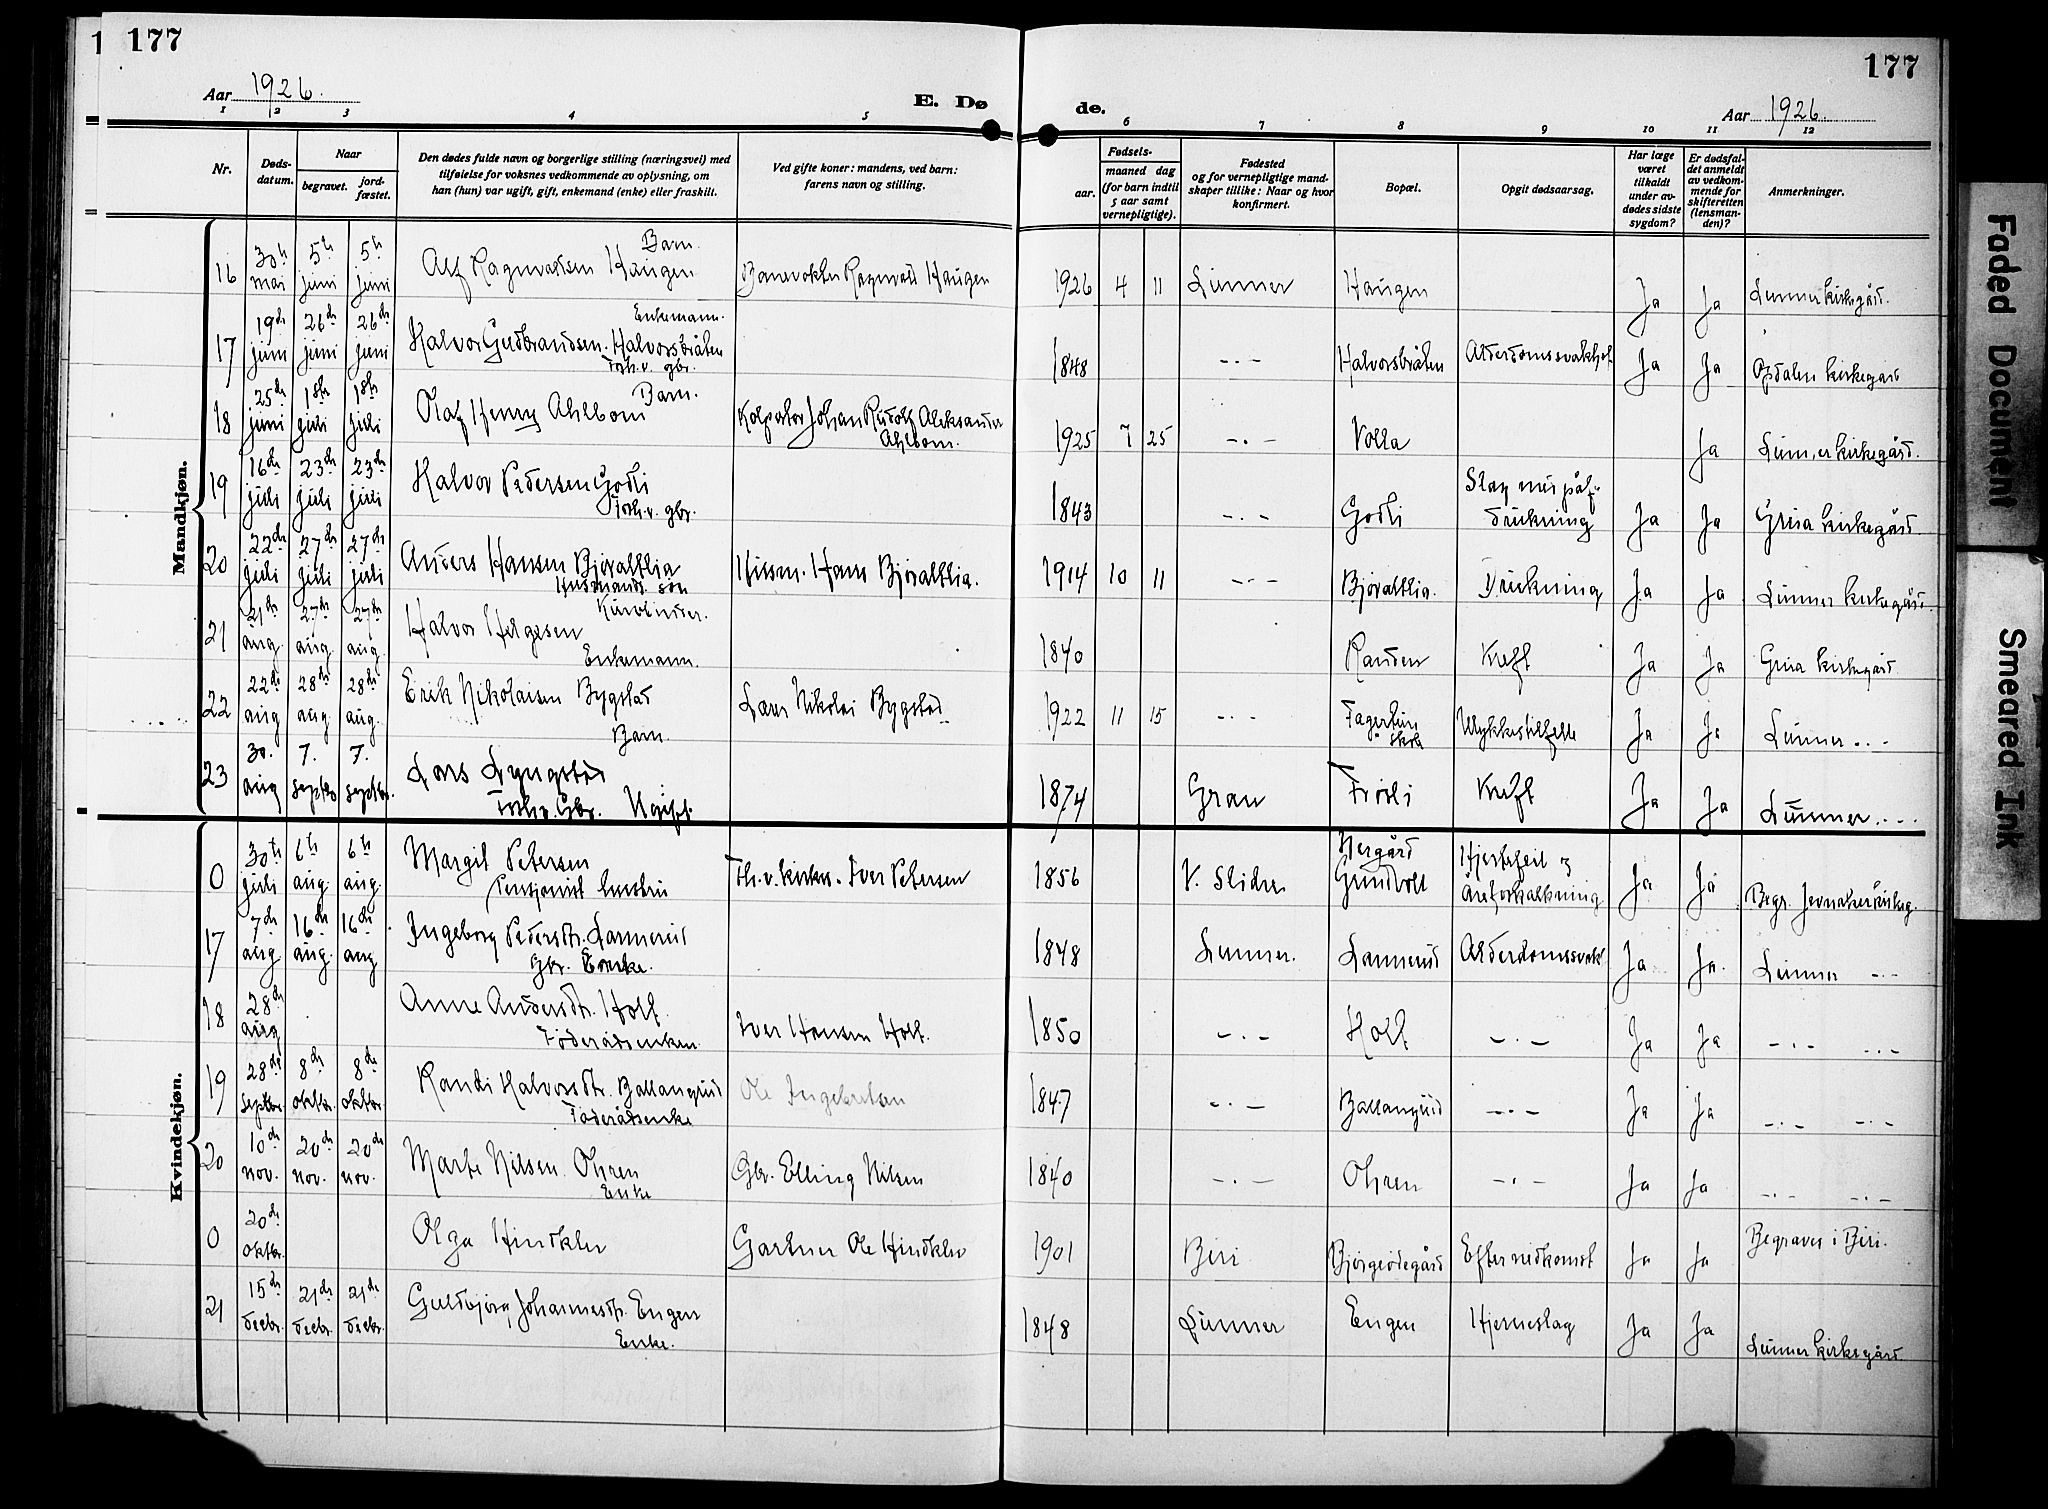 177
177
Aar 1926.
E. Døde.
Aar 1926.
1 2 3 4 5 6 7 8 9 10 11 12
Nr.
Døds-
datum.
Naar
begravet.
jord-
fæstet.
Den dødes fulde navn og borgerlige stilling (næringsvei) med
tilføielse for voksnes vedkommende av oplysning, om
han (hun) var ugift, gift, enkemand (enke) eller fraskilt.
Ved gifte koner: mandens, ved barn:
farens navn og stilling.
Fødsels-
aar.
maaned dag
(for barn indtil
5 aar samt
vernepligtige).
Fødested
og for vernepligtige mand-
skaper tillike: Naar og hvor
konfirmert.
Bopæl.
Opgit dødsaarsag.
Har læge
været
tilkaldt
under av-
dødes sidste
sygdom?
Er dødsfal-
det anmeldt
av vedkom-
mende for
skifteretten
(lensman-
den)?
Anmerkninger.
Mandkjøn.
16 30te mai 5te juni 5te juni Alf Ragnvaldsen Haugen Barn. Banevokter Ragnvald Haugen 1926 4 11 Lunner Haugen Ja Ja Lunner kirkegård.
17 19de juni 26de juni 26de juni Halvor Gudbrandsen Halvorsbråten Enkemann. Forh.v. gbr. 1848 -.- Halvorsbråten Alderdomssvakhet Ja Ja Opdalen kirkegård
18 25de juni 18de juli 18de juli Olaf Henry Ahlbom Barn. Kolportør Johan Rudolf Aleksander Ahlbom. 1925 7 25 -.- Volla Ja Lunner kirkegård.
19 16de juli 23de juli 23de juli Halvor Pedersen Godli Forh.v. gbr. 1843 -.- Godli Slag med påf. drukning Ja Ja Grua kirkegård.
20 22de juli 27de juli 27de juli Anders Hansen Bjøralttlia Husmands søn Hussm. Hans Bjøralttlia. 1914 10 11 -.- Bjøralttlia. Drukning Ja Ja Lunner kirkegård.
21 21de aug. 27de aug. 27de aug. Halvor Helgesen Kurvbinder. Enkemann. 1840 Randen Kreft Ja Ja Grua kirkegård
22 22de aug 28de aug 28de aug. Erik Nikolaisen Bygstad Barn. Lars Nikolai Bygstad 1922 11 15 -.- Fagerlund skole Ulykkestilfelle Ja Ja Lunner -.-
23 30. aug 7. septbr. 7. septbr. Lars Lyngstad Forh.v. Gbr. Ugift. 1874 Gran Frøsli Kreft Ja Ja Lunner -.-
Kvindekjøn.
0 30te juli 6te aug. 6te aug. Margit Petersen Pensjonist hustru Fh.v. kirkes. Iver Petersen 1856 V. Slidre Nergård Grindvoll Hjertefeil og Åreforkalkning Ja Ja Begr. Jevnaker kirkeg.
17 7de aug. 16de aug. 16de aug Ingeborg Pedersdtr. Lannerud Gbr. Enke. 1848 Lunner. Lannerud Alderdomssvakh. Ja Ja Lunner -.-
18 28de aug Anne Andersdtr. Holt Føderådsenke. Iver Hansen Holt. 1850 -.- Holt -.- Ja Ja -.- -.-
19 28de septbr. 8de oktbr. 8de oktbr. Randi Halvorsdtr. Ballangrud Føderådsenke Ole Ingebretsen 1847 -.- Ballangrud -.- Ja Ja -.- -.-
20 10de nov. 20de nov. 20de nov. Marte Nilsen Ohren Enke Gbr. Elling Nilsen 1840 -.- Ohren -.- Ja Ja -.- -.-
0 20de oktbr. Olga Hindklev Gartner Ole Hindklev 1901 Biri Bjørgeødegård Efter nedkomst Ja Ja Begraves i Biri.
21 15de decbr. 21de decbr. 21de decbr. Guldbjørg Johannesdtr. Engen Enke. 1848 Lunner Engen Hjerneslag Ja Ja Lunner kirkegård.
Faded Document
Smeared Ink